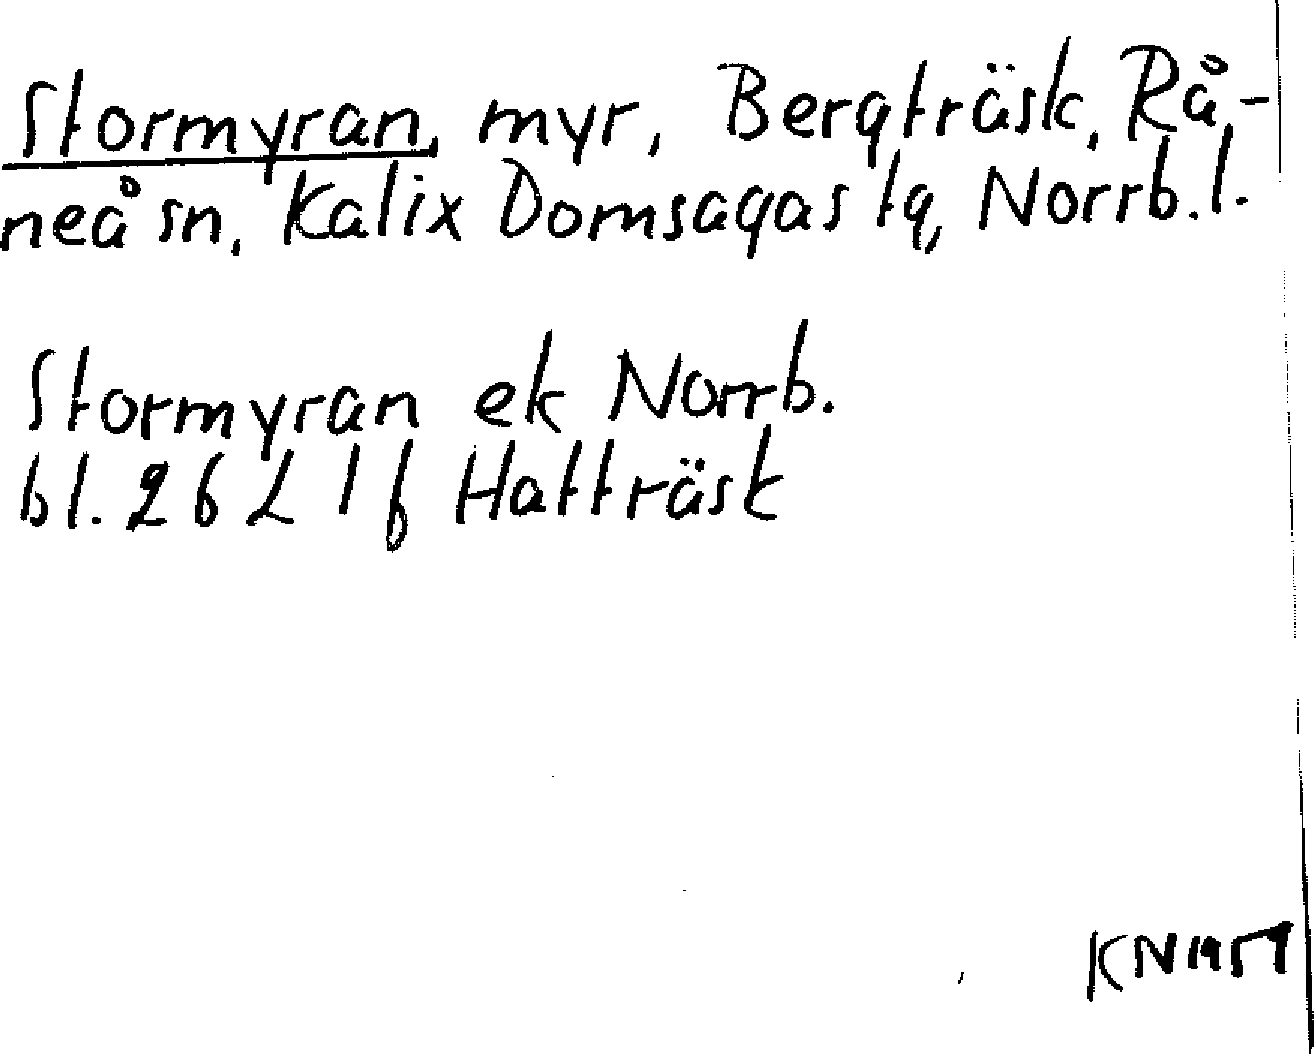 Stormyran, myr, Bergträsk, Rå-
neå sn, Kalix Domsagas tg, Norrb. l.
Stormyran ek Norrb.
bl. 26 L 1 f Hatträsk
KN 1957